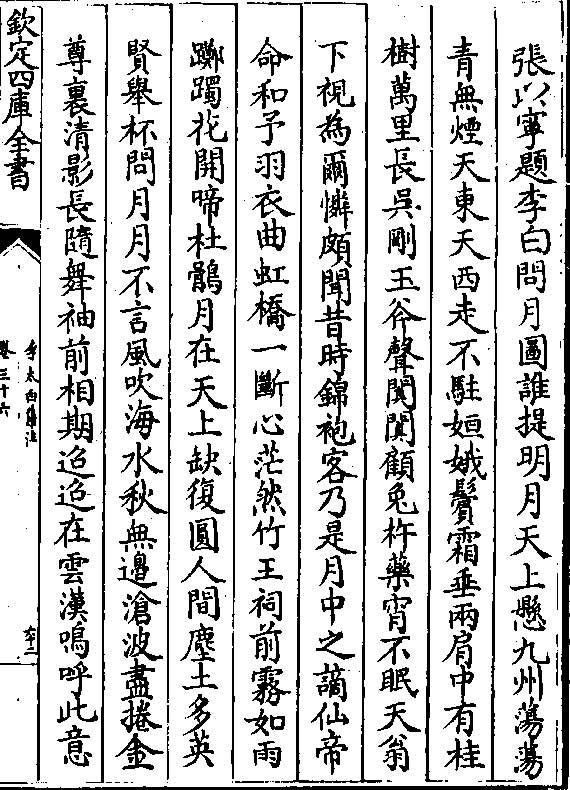 張以寧題李白問月圖誰提明月天上懸九州蕩蕩
青無煙天東天西走不駐姮娥鬢霜垂兩肩中有桂
樹萬里長吳剛玉斧聲闐闐顧兔杵藥宵不眠天翁
下視為爾憐頗聞昔時錦袍客乃是月中之謫仙帝
命和予羽衣曲虹橋一斷心茫然竹王祠前霧如雨
躑躅花開啼杜鵑月在天上缺復圓人間塵土多英
賢舉杯問月月不言風吹海水秋無邊滄波盡捲金
尊裏清影長隨舞袖前相期迢迢在雲漢嗚呼此意
欽定四庫全書
李太白集注
卷三十六